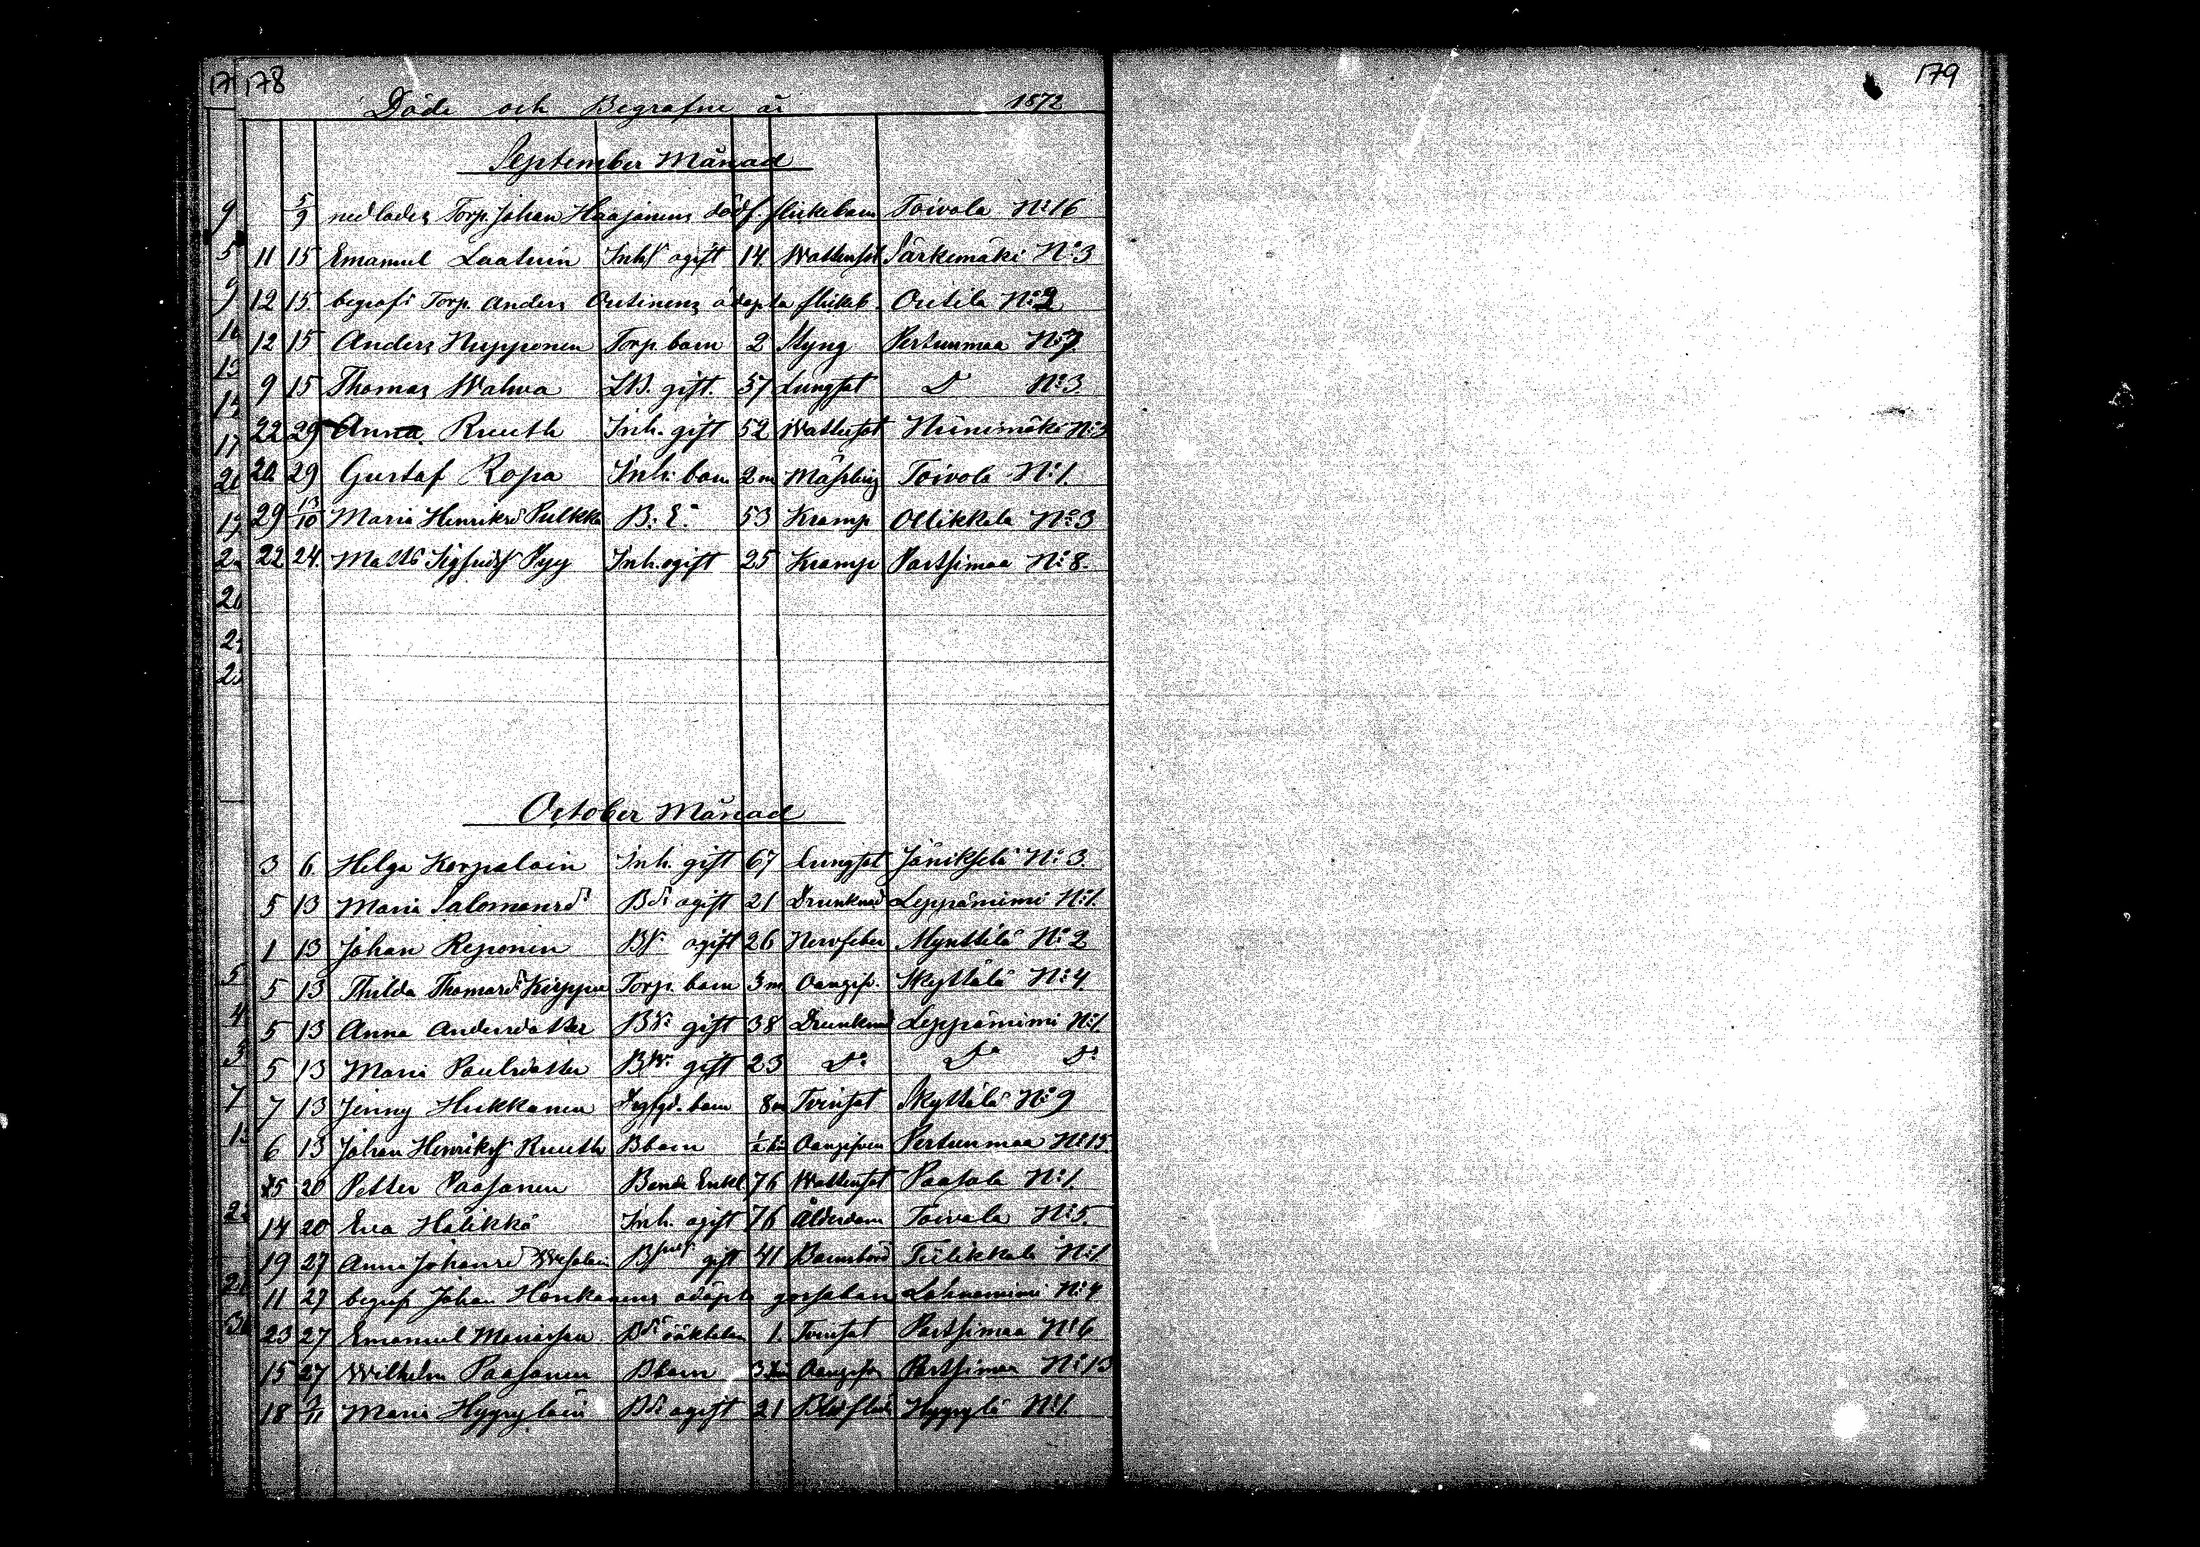 178
179
Döde och Begrafne år 1872
September Månad
5/9 nedlades Torp. Johan Haajanens dödf. flickebarn Toivola No 16
11 15 Emanuel Laatuin Inhs ogift 14 Wattusot Särkemäki No 3
12 15 begrofs Torp. Anders Outinens odöpta flickeb. Outila No 2
12 15 Anders Nupponen Torp. barn 2 Styng Pertunmaa No 7
9 15 Thomas Walwa gift. 57 Lungsot Do No 3
22 29 Anna Ruuth Inh. gift 52 Wattusot Niinimäki
20 29 Gustaf Ropa Inh. barn 2 m Mässling Toivola No 1.
29 13/10 Maria Henriksd. Pulkka B. E. 53 Kramp Ollikkala No 3
22 24. Matts Sigfridss Pyy Inh. ogift 25 Kramp Partsimaa No 8.
October Månad
3 6 Helga Korpelain Inh. gift 67 Lungsot Jänikselä No 3.
5 13 Maria Salomonsdr Bdr ogift 21 Drunknad Leppäniemi No 1.
1 13 Johan Reponen Bs. ogift 26 Nervfeber Mynttilä No 2
5 13 Thilda Thomasdr Kieppa Torp. barn 3 m Oangifv. Skyttälä No 4
5 13 Anna Andersdotter gift 38 Drunknad Leppäniemi No 1
5 13 Maria Paulsdotter gift 23 Do Do Do
7 13 Jenny Hukkanen barn 8 m Tvinsot Skyttälä No 9
6 13 Johan Henrikss Ruuth Bbarn 1/2 Oangifven Pertunmaa No 15.
15 20 Petter Paasonen Bonde Enkl. 76 Wattusot Paasola No 1
14 20 Eva Halikka Inh. ogift 76 Ålderdom Toivola No 5.
19 27 Anna Johansd. gift 41 Barnsbörd Tiilikkala No 1
11 27 begrofs Johan Honkanens odöpta gossabarn Lahnaniemi No 4
23 27 Emanuel Mariasson Bdr oäkta 1. Tvinsot Partsimaa No 6
15 27 Wilhelm Paasonen Bbarn 3 Oangifv Partsimaa No 13
18 3/11 Maria Hyyryläin Bdr ogift 21 Hyyrylä No 1.